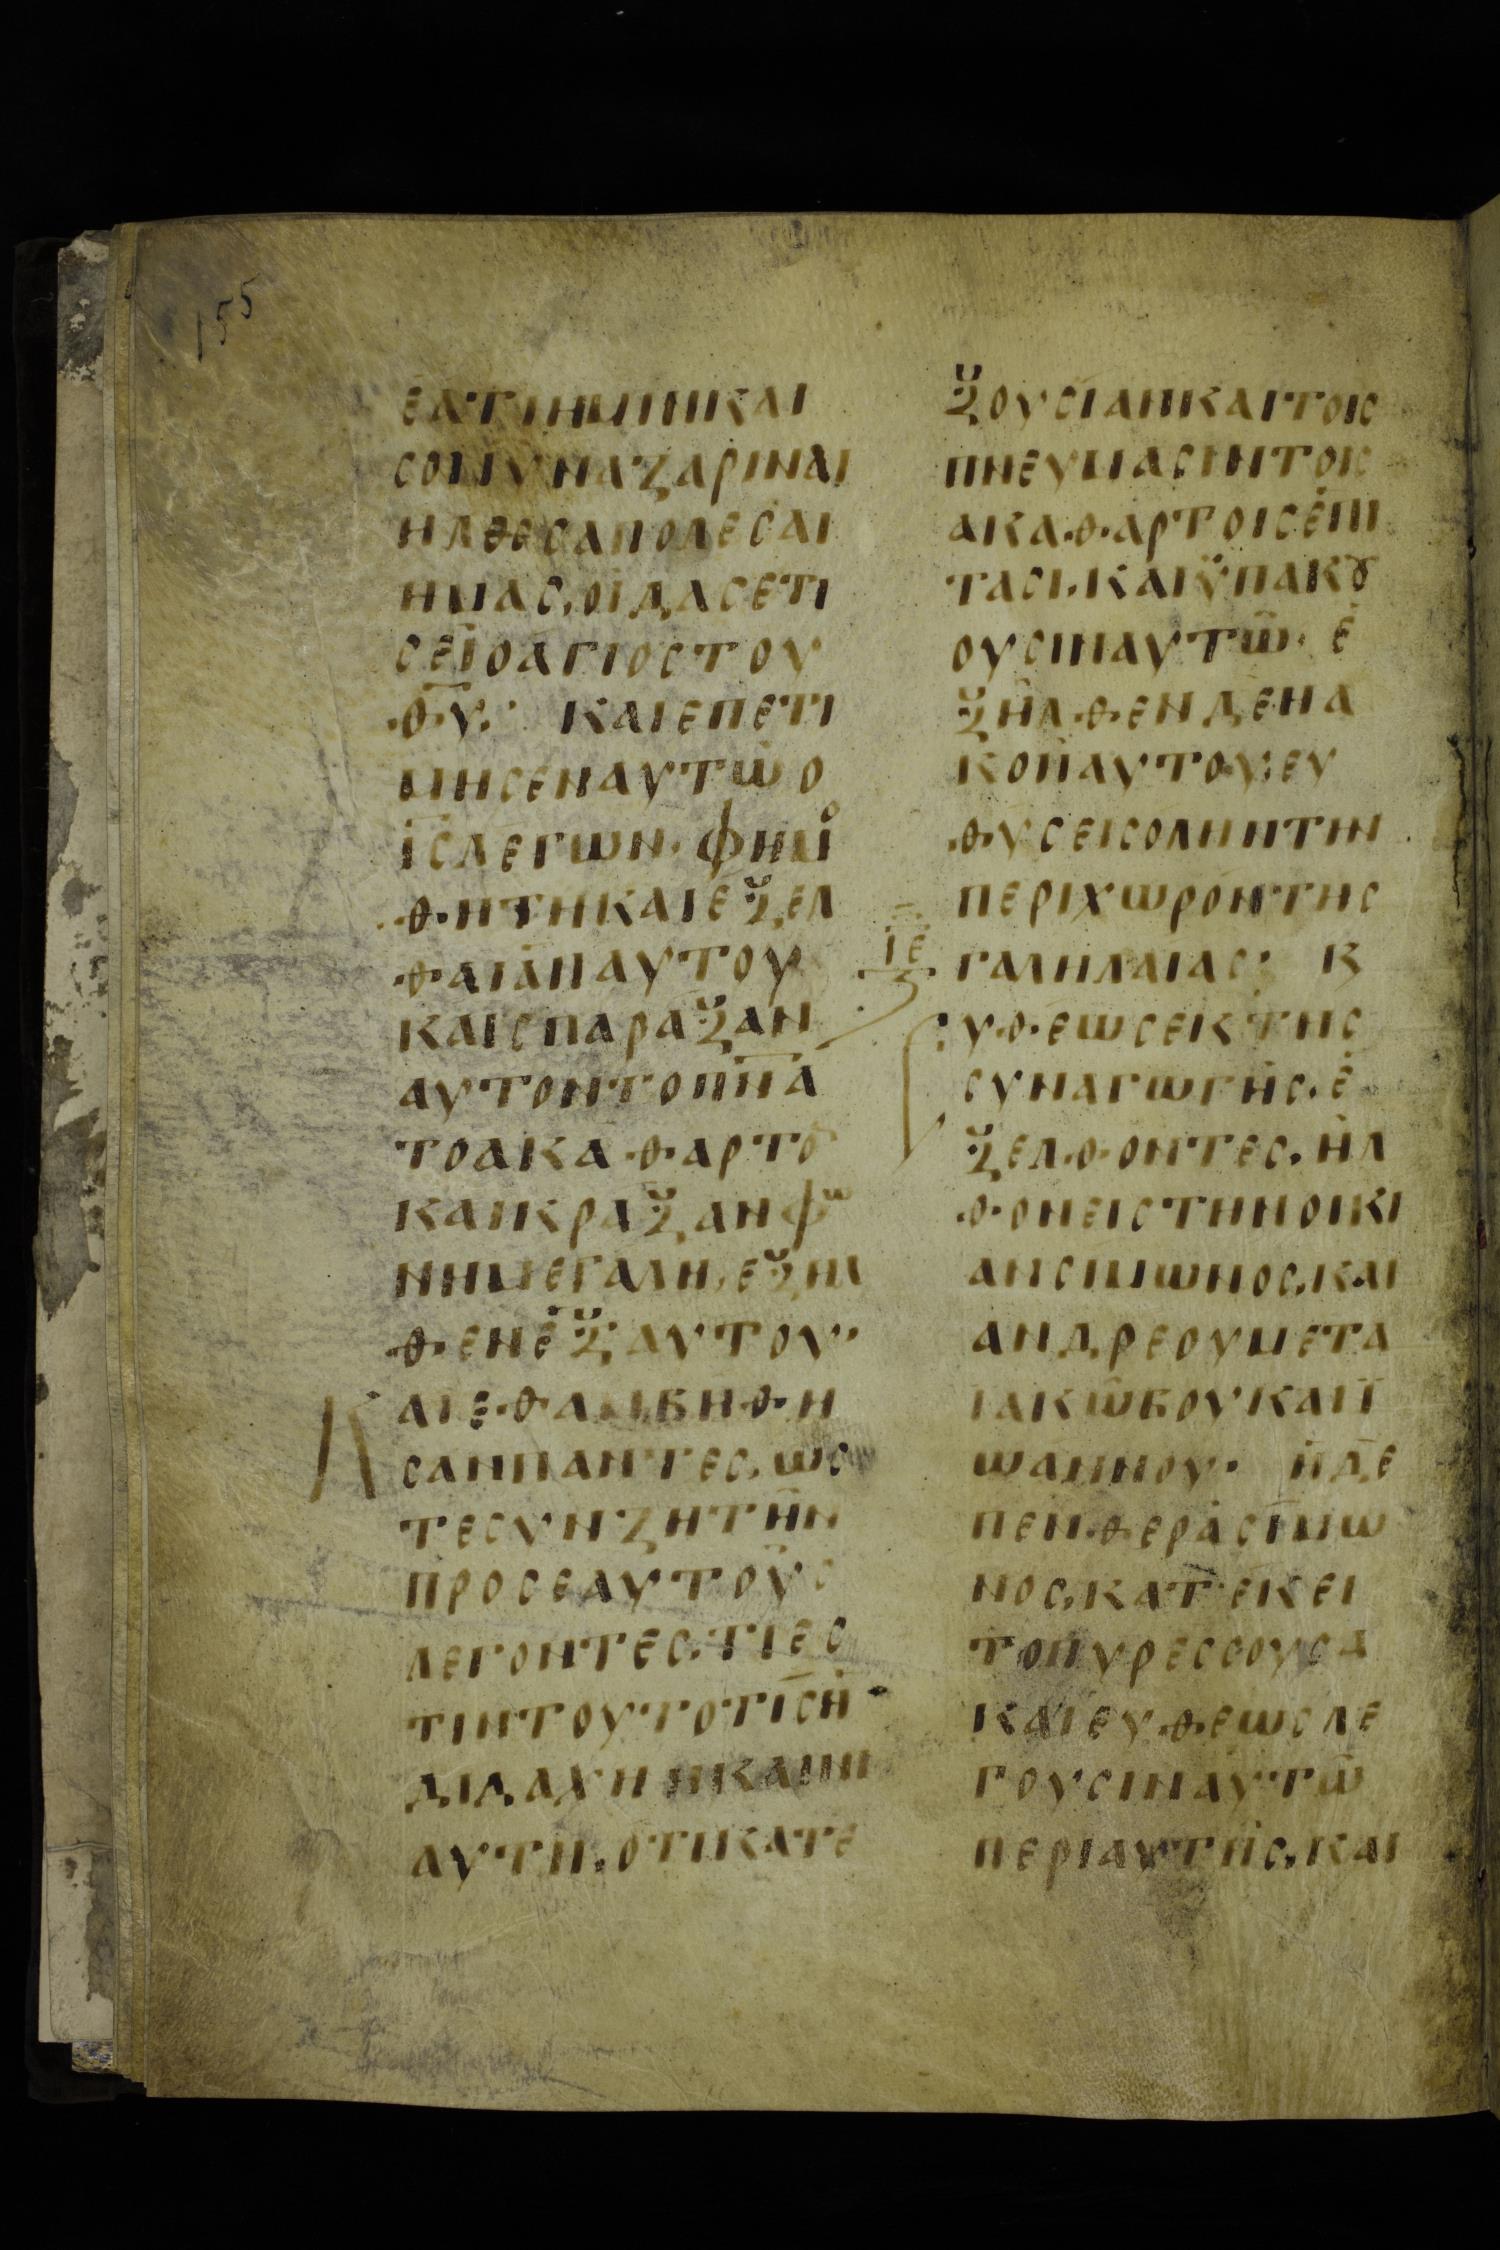 155
ΕΑΤΙΗΜΙΝΚΑΙ
ΣΟΙΙΥΝΑΖΑΡΙΝΑΙ
ΗΛΘΕΣΑΠΟΛΕΣΑΙ
ΗΜΑΣ,ΟΙΔΑΣΕΤΙ
ΣΕΙΟΑΓΙΟΣΤΟΥ
ΘΥ· ΚΑΙΕΠΕΤΙ
ΜΗΣΕΝΑΥΤΩΟ
ΙΣΛΕΓΩΝ·ΦΗΜΟ
ΘΗΤΗΚΑΙΕΞΕΛ
ΘΑΙΑΠΑΥΤΟΥ
ΚΑΙΣΠΑΡΑΞΑΝ
ΑΥΤΟΝΤΟΠΝΑ
ΤΟΑΚΑΘΑΡΤΟ
ΚΑΙΚΡΑΞΑΝΦΩ
ΝΗΜΕΓΑΛΗ,ΕΞΗΛ
ΘΕΝΕΞΑΥΤΟΥ·
ΚΑΙΕΘΑΜΒΗΘΗ
ΣΑΝΠΑΝΤΕΣ,ΩΣ
ΤΕΣΥΝΖΗΤΗΝ
ΠΡΟΣΕΑΥΤΟΥΣ
ΛΕΓΟΝΤΕΣ,ΤΙΕΣ
ΤΙΝΤΟΥΤΟΤΙΣΗ
ΔΙΔΑΧΗΗΚΑΙΝΗ
ΑΥΤΗ,ΟΤΙΚΑΤΕ
ΞΟΥΣΙΑΝΚΑΙΤΟΙΣ
ΠΝΕΥΜΑΣΙΝΤΟΙΣ
ΑΚΑΘΑΡΤΟΙΣΕΠΙ
ΤΑΣΙ,ΚΑΙΥΠΑΚȢ
ΟΥΣΙΝΑΥΤΩ· Ε
ΞΗΛΘΕΝΔΕΗΑ
ΚΟΗΑΥΤΟΥ;ΕΥ
ΘΥΣΕΙΣΟΛΗΝΤΗΝ
ΠΕΡΙΧΩΡΟΝΤΗΣ
ΙΕ ΓΑΛΗΛΑΙΑΣ· Κ
ΥΘΕΩΣΕΚΤΗΣ
ΣΥΝΑΓΩΓΗΣ,Ε
ΞΕΛΘΟΝΤΕΣ,ΗΛ
ΘΟΝΕΙΣΤΗΝΟΙΚΙ
ΑΝΣΙΜΩΝΟΣ,ΚΑΙ
ΑΝΔΡΕΟΥΜΕΤΑ
ΙΑΚΩΒΟΥΚΑΙΙ
ΩΑΝΝΟΥ· ΗΔΕ
ΠΕΝΘΕΡΑΣΙΜΩ
ΝΟΣ,ΚΑΤΕΚΕΙ
ΤΟΠΥΡΕΣΣΟΥΣΑ
ΚΑΙΕΥΘΕΩΣΛΕ
ΓΟΥΣΙΝΑΥΤΩ
ΠΕΡΙΑΥΤΗΣ,ΚΑΙ